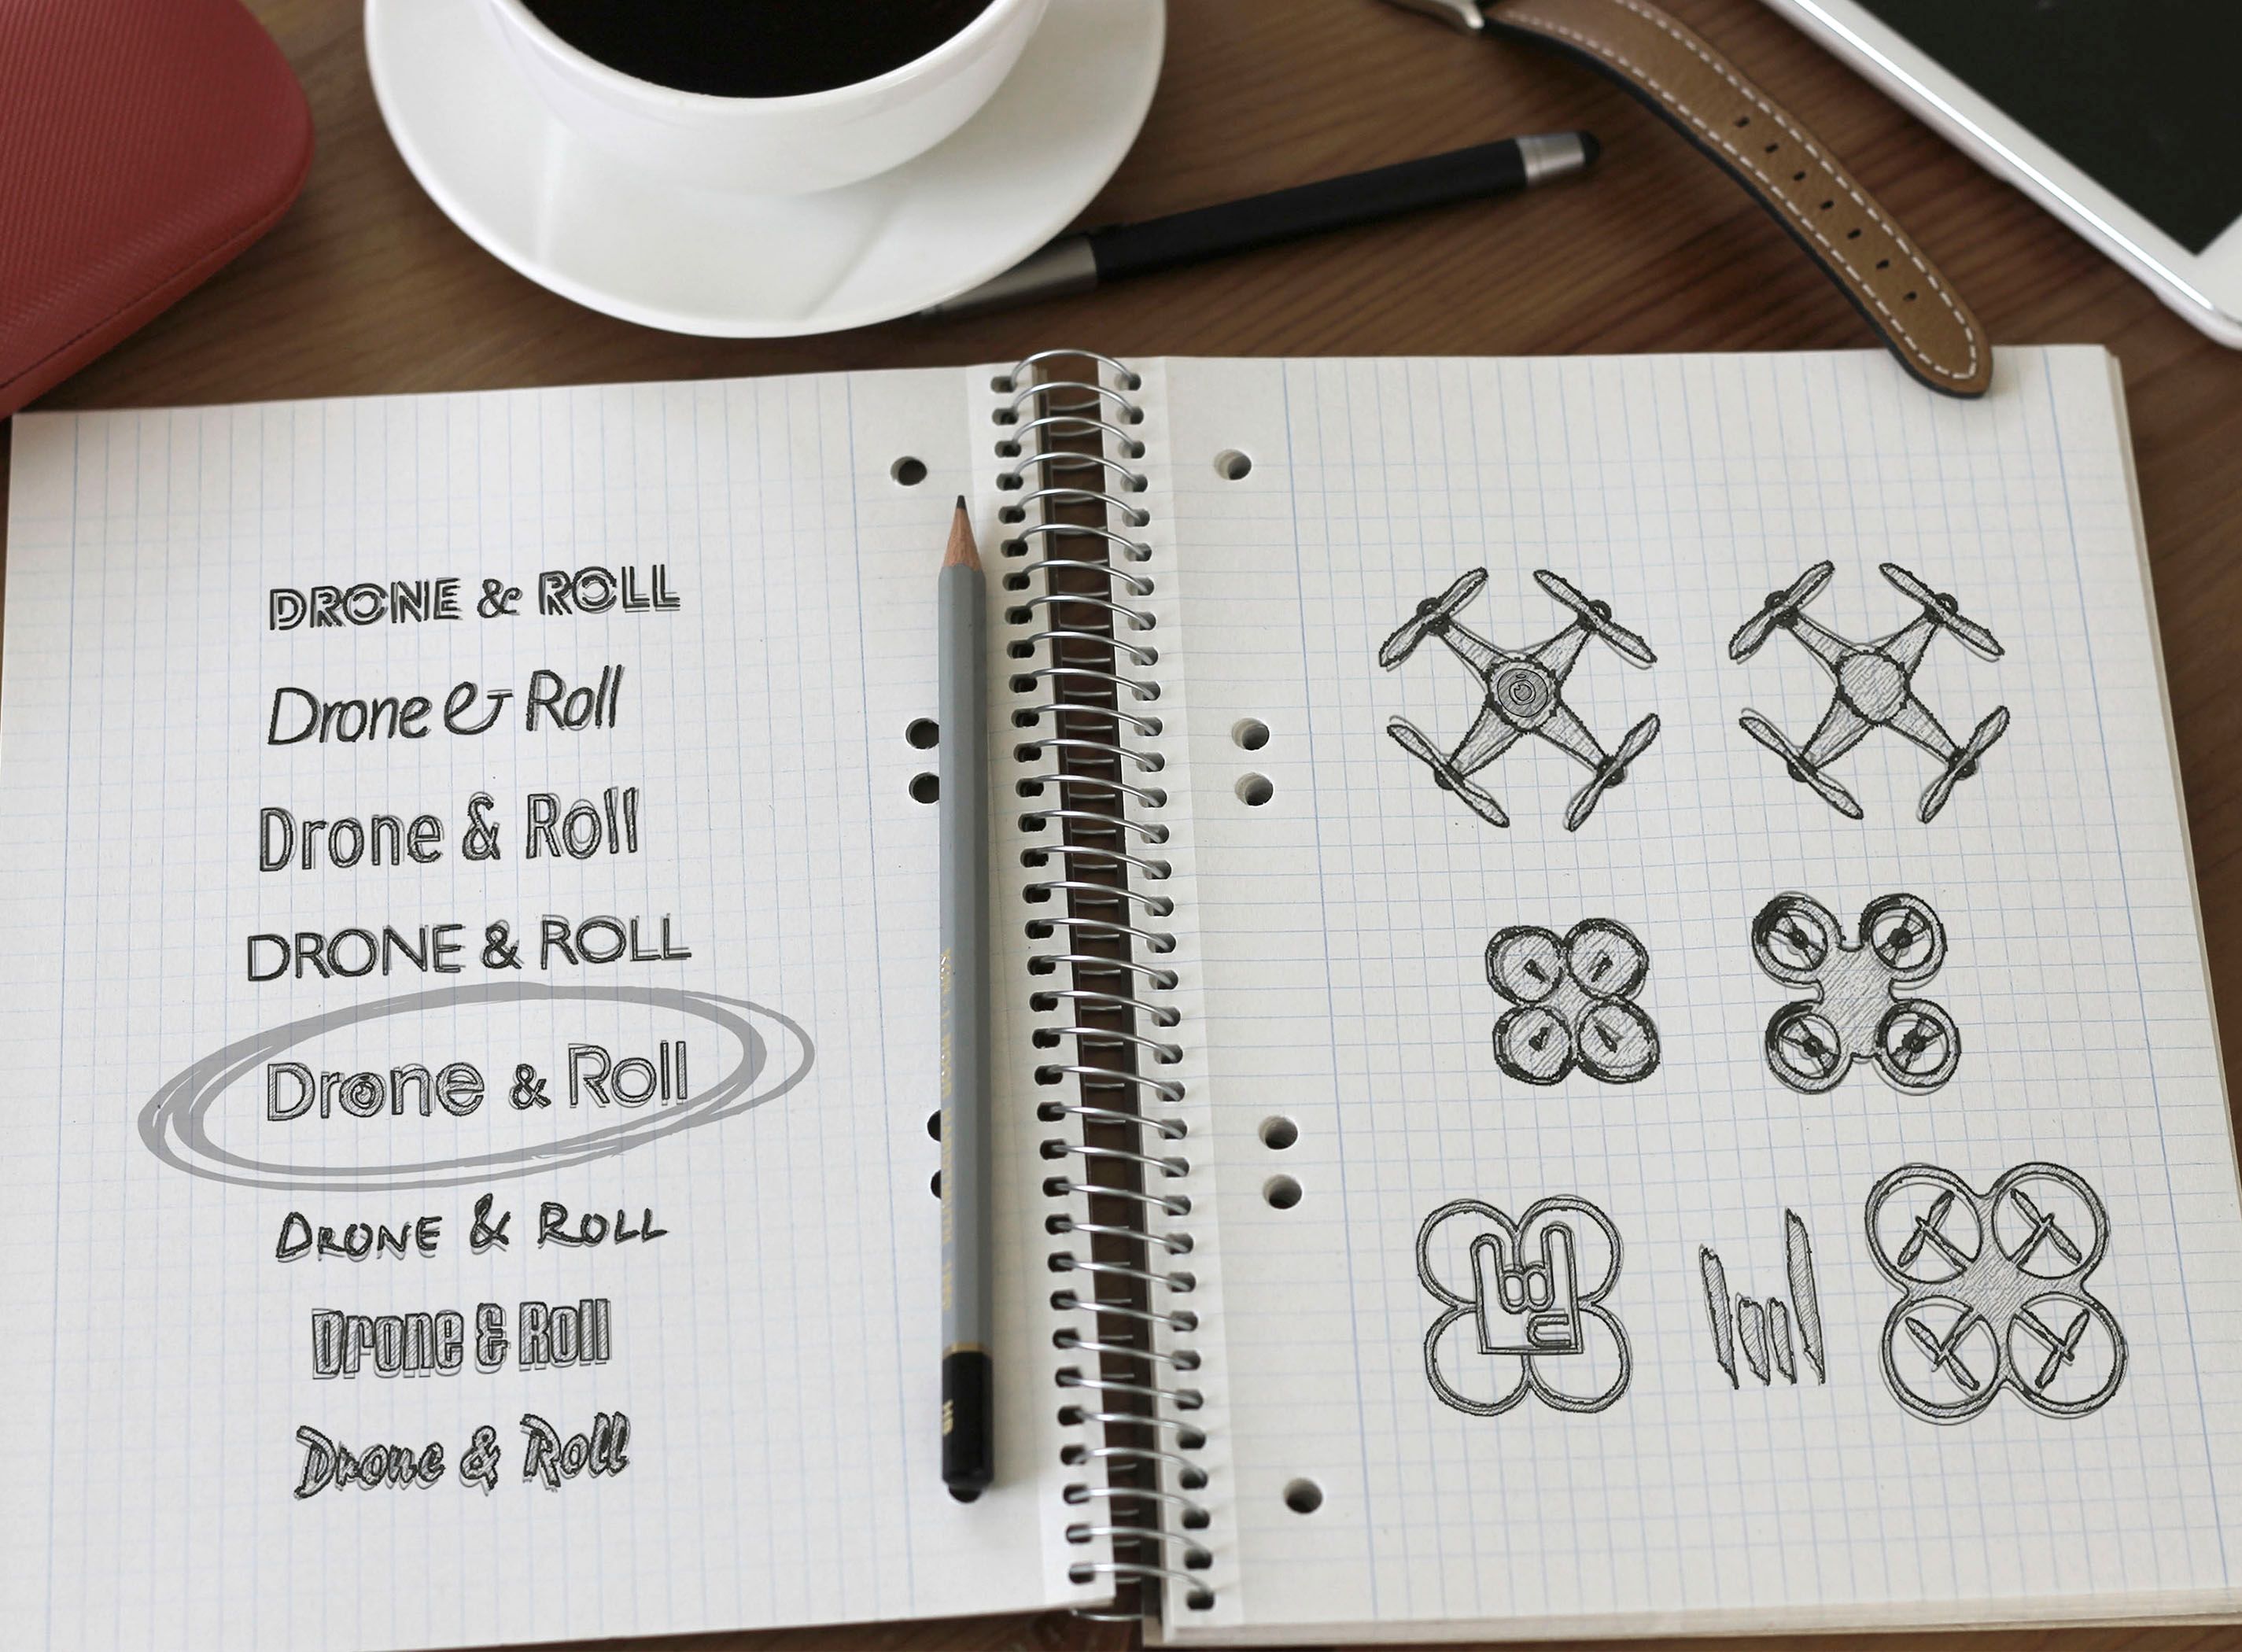 DRONE & ROLL
Drone & Roll
Drone & Roll
DRONE & ROLL
Drone & Roll
DRONE & ROLL
Drone & Roll
Drone & Roll
HB